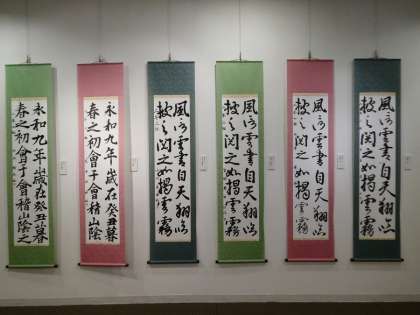 風信雲書自天翔臨
披之閲之如揭雲霧
風信雲書自天翔臨
披之閲之如揭雲霧
風信雲書自天翔臨
披之閲之如揭雲霧
風信雲書自天翔臨
披之閲之如揭雲霧
永和九年歳在癸丑暮
春之初會于會稽山陰
永和九年歳在癸丑暮
春之初會于會稽山陰之